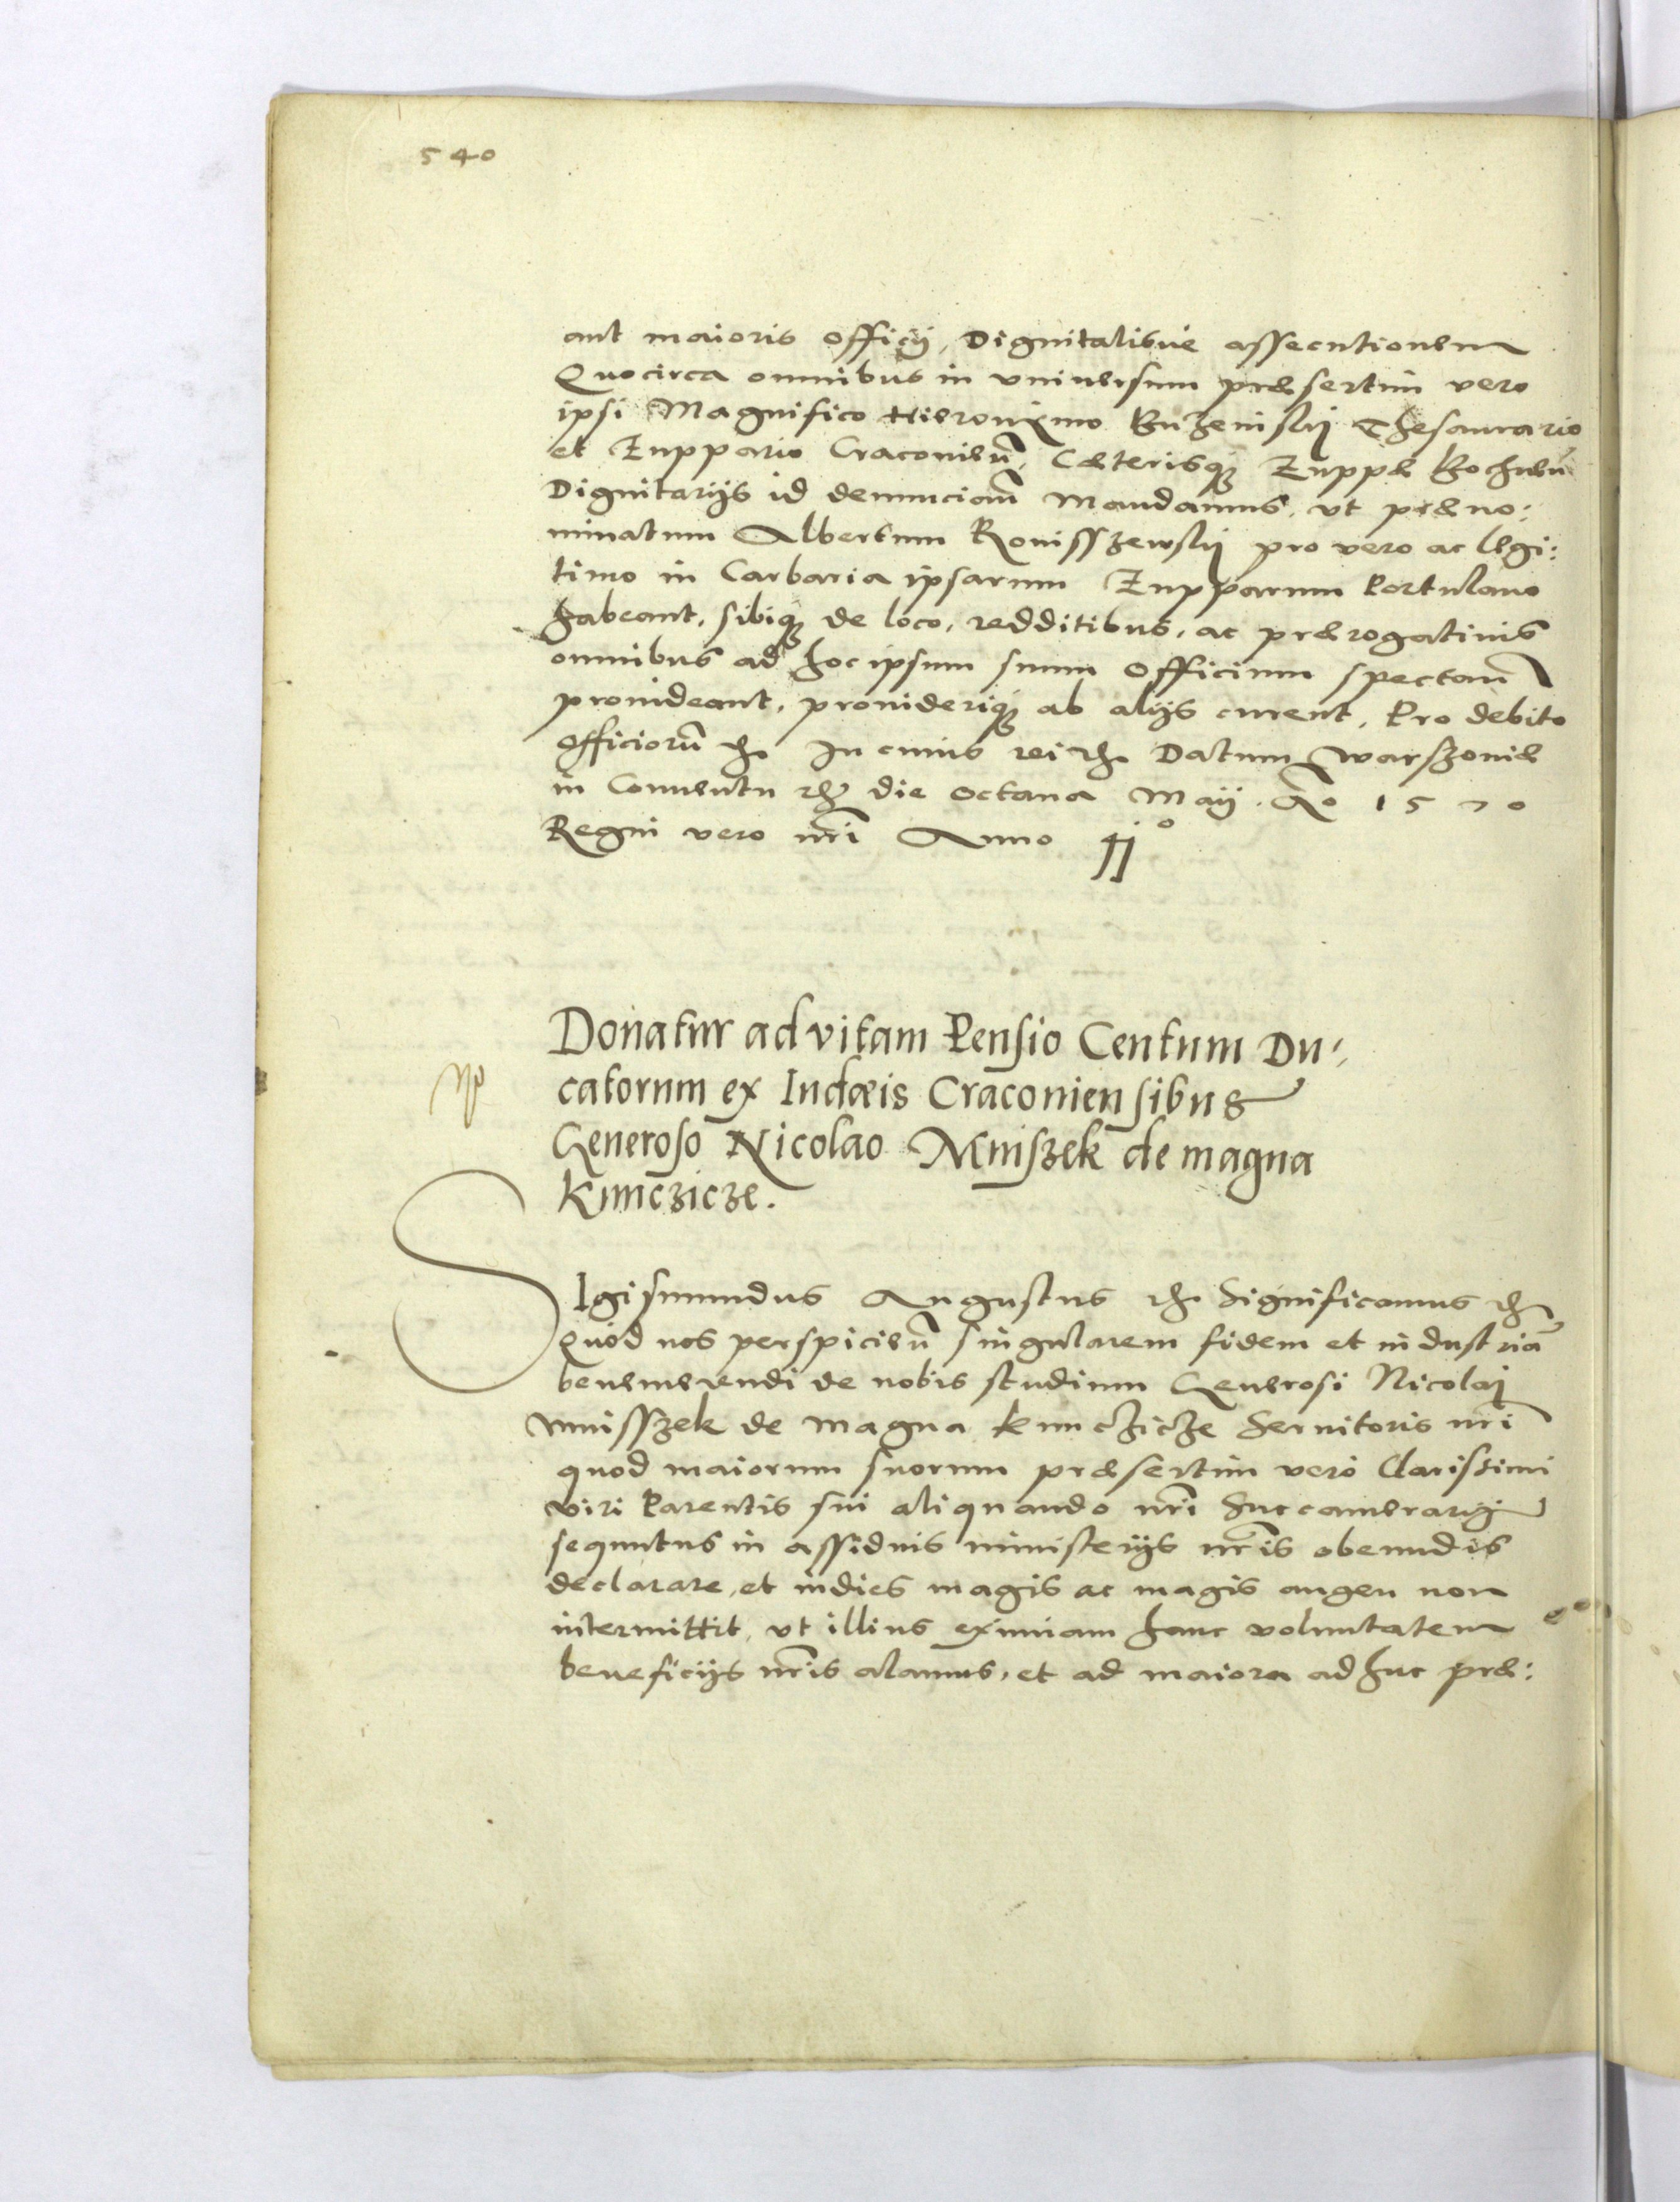 540
aut maioris officij, Dignitatisue assecutionem
Quocirca omnibus in vniuersum præsertim vero
ipsi Magnifico Hieronymo Buzeniskj Thesaurario
et Zuppario Craconien̄, Cæterisq; Zuppæ Bochnen̄
Dignitarijs id denunciam̄ Mandamus, vt præno:
minatum Albertum Ronisszewskj pro vero ac legi:
timo in Carbaria ipsarum Zupparum Portulano
habeant, sibiq; de loco, redditibus, ac prærogatiuis
omnibus ad hoc ipsum suum Officium spectan̄
prouideant, prouideriq; ab alijs curent, Pro debito
Officiorū etc. In cuius rei etc. Datum Warszouiæ
in Conuentu etc. die octaua Maij. Ao 1570
Regni vero nr̄i Anno 41o
Donatur ad vitam Pensio Centum Du:
catorum ex Iudæis Craconiensibus
Generoso Nicolao Mniszek de magna
Kunczicze.
SIgismundus Augustus etc. Significamus etc.
Quod nos perspicien̄ singularem fidem et industriā
benemerendi de nobis studium Generosi Nicolaj
Mnisszek de magna Kunczicze Seruitoris nr̄i
quod maiorum suorum præsertim vero Clarissimi
viri Parentis sui aliquando nr̄i Succamerarij
sequutus in assiduis ministerijs nr̄is obeundis
declarare, et indies magis ac magis augeri non
intermittit, vt illius eximiam hanc voluntatem
beneficijs nr̄is alamus, et ad maiora adhuc præ: